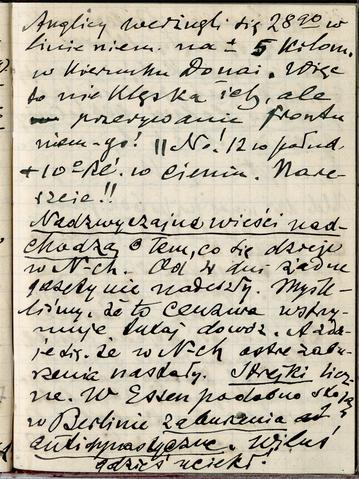 Anglicy werżnęli się 28go w
linie niem. na ± 5 kilom.
w kierunku Douai. Więc
to nie klęska ich, ale
przerywanie frontu
niem-go! || No! 12 w połud.
+ 10° Ré. w cieniu. Nare-
szcie!!
Nadzwyczajne wieści nad-
chodzą o tem, co się dzieje
w N-ch. Od 4 dni żadne
gazety nie nadeszły. Myśle-
liśmy, że to cenzura wstrzy-
muje tutaj dowóz. A zda-
je się, że w N-ch ostre zabu-
rzenia nastały. Strejki licz-
ne. W Essen podobno stoją
w Berlinie zaburzenia
antidynastyczne. Wiluś
gdzieś uciekł!